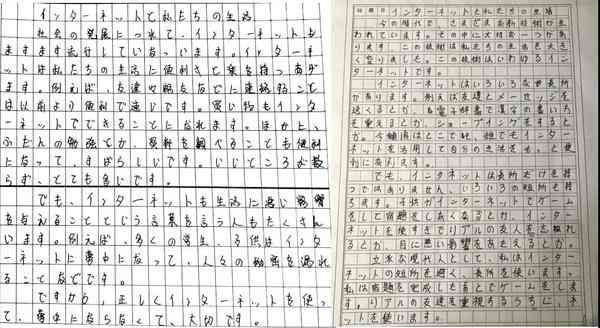 インターネットと私たちの生活
社会の発展につれて、インターネットも
ますます流行していなっています。インターネ
ットは私たちの生活に便利さと楽を持つあり
ます。例えば、友達や親友などに連絡すること
は以前より便利で速いです。買い物もインタ
ーネットでできることになれます。ほかに、
ふだんの勉強とか、資料を調べることも便利
になって、すばらしいです。いいところが数
らず、とても多いです。
でも、インターネットも生活に悪い影響
を与えることという言葉を言う人もたくさん
います。例えば、多くの学生、子供はインタ
ーネットに夢中になって、人々の
ることなどです。
ですから、正しくインターネットを使っ
て、夢中にならなくて、大切です。
インターネットと私たちの生活
今の時代で、さまざまな新技術が生
われています。その中に大切な一つがあ
ります。この技術は私たちの生活を大き
く変りました。この技術はいわゆるイン
ターネットです。
インターネットはいろいろな長所
があります。例えば友達とメーセッジを
送くるとか、電子辞書で漢字の書い方
を覚えるとか、ショッピングをすると
か。今、結局はどこでも、誰でもインター
ネットを活用して自分の生活をもっと便
利に出来ます。
でも、インタネットは長所だけを持
つではありません、いろいろの短所を持
ちます。子供がインタネットでゲーム
をして宿題をしなくなるとか、インター
ネットを使すぎてリアルの友人を忘れ
るとか、目に悪い影響を与たえるとか。
立派な現代人として、私はインター
ネットの短所を避く、長所を使います。
私は宿題を完成した後でゲームをしま
す。リアルの友達を重視するうちに、ネ
ットを使います。